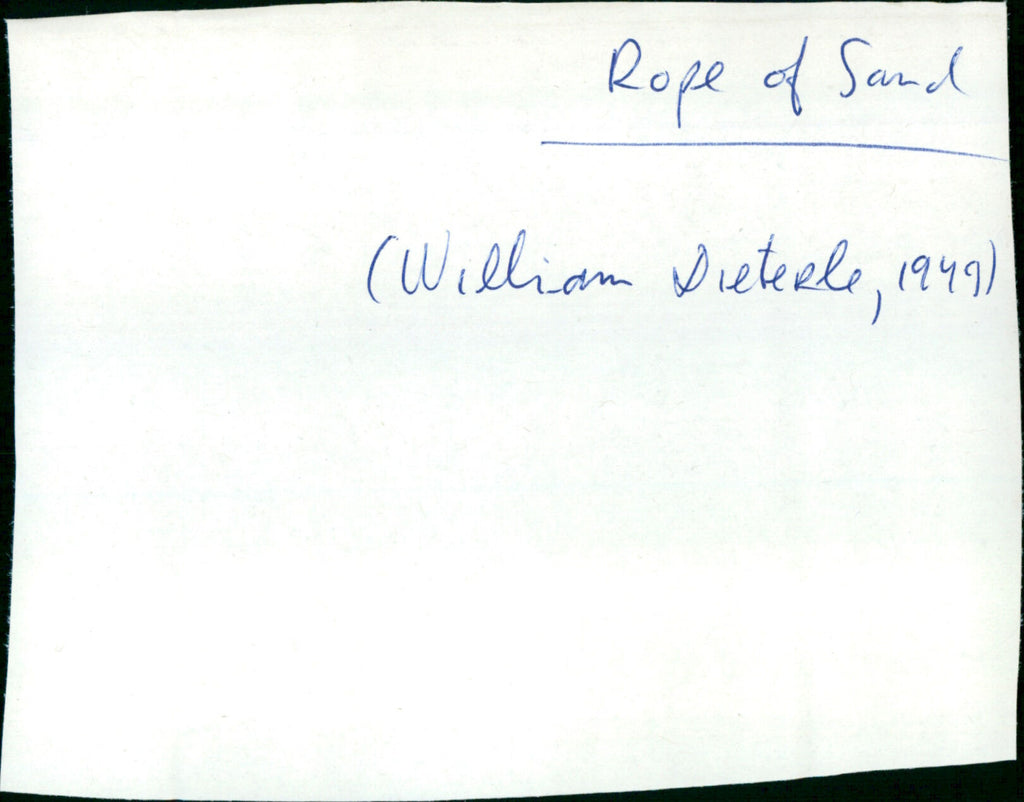 Rope of Sand
(William Dieterle, 1949)